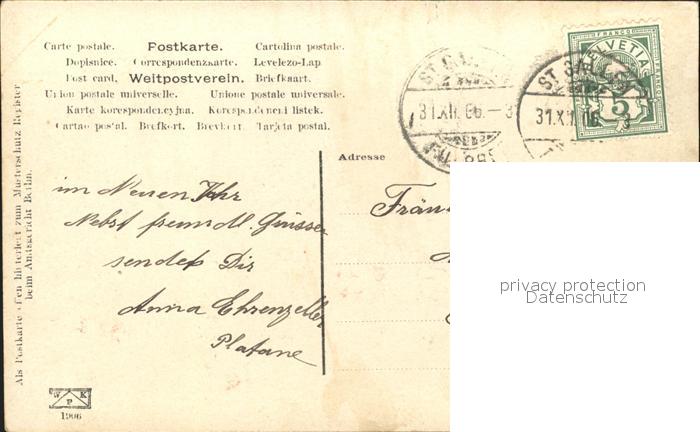 Carte postale. Postkarte. Cartolina postale.
Dopisnice. Correspondenzkarte. Levelezo-Lap
Post card, Weltpostverein. Briefkaart.
Union postale universelle. Unione postale universale.
Karte korespondencyjna. Korespondenčni listek.
Cartao postal. Brefkort. Brevkort. Tarjeta postal.
Als Postkarte offen hinterlegt zum Musterschutz Register
beim Amtsgericht Berlin.
HELVETIA
FRANCO
5
ST. GALLEN
31.XII.06.-3
ST. GALLEN
31.XII.06.
Adresse
im Neuen Jahr
Nebst freundl. Grüssen
sendet Dir
Anna Ehrenzeller
Platane
Fräu
privacy protection
Datenschutz
W K
P
1906